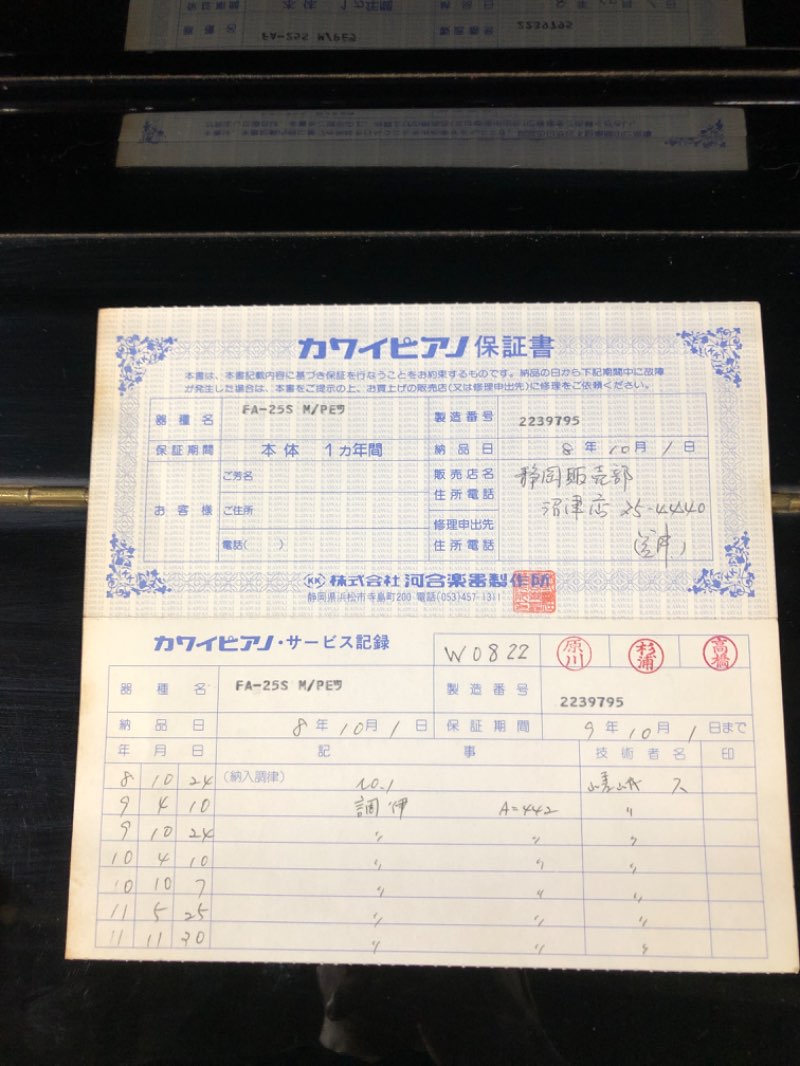 カワイピアノ保証書
本書は、本書記載内容に基づき保証を行なうことをお約束するものです。納品の日から下記期間中に故障
が発生した場合は、本書をご提示の上、お買上げの販売店(又は修理申出先)に修理をご依頼ください。
器種名 FA-25S M/PEラ 製造番号 2239795
保証期間 本体 1カ年間 納品日 8年10月1日
お客様 ご芳名 販売店名 静岡販売部
住所電話 沼津店 25-4440
ご住所 修理申出先
電話( ) 住所電話
KK 株式会社 河合楽器製作所
静岡県浜松市寺島町200 電話(053)457-1311
カワイピアノ・サービス記録 W0822 原川 杉浦 高橋
器種名 FA-25S M/PEラ 製造番号 2239795
納品日 8年10月1日 保証期間 9年10月1日まで
年月日 記事 技術者名 印
8 10 24 (納入調律)
9 4 10 A=442 〃
9 10 24 〃 〃 〃
10 4 10 〃 〃 〃
10 10 7 〃 〃 〃
11 5 25 〃 〃 〃
11 11 30 〃 〃 〃